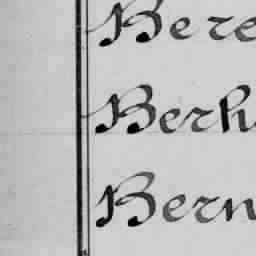 Bere
Berh
Bern